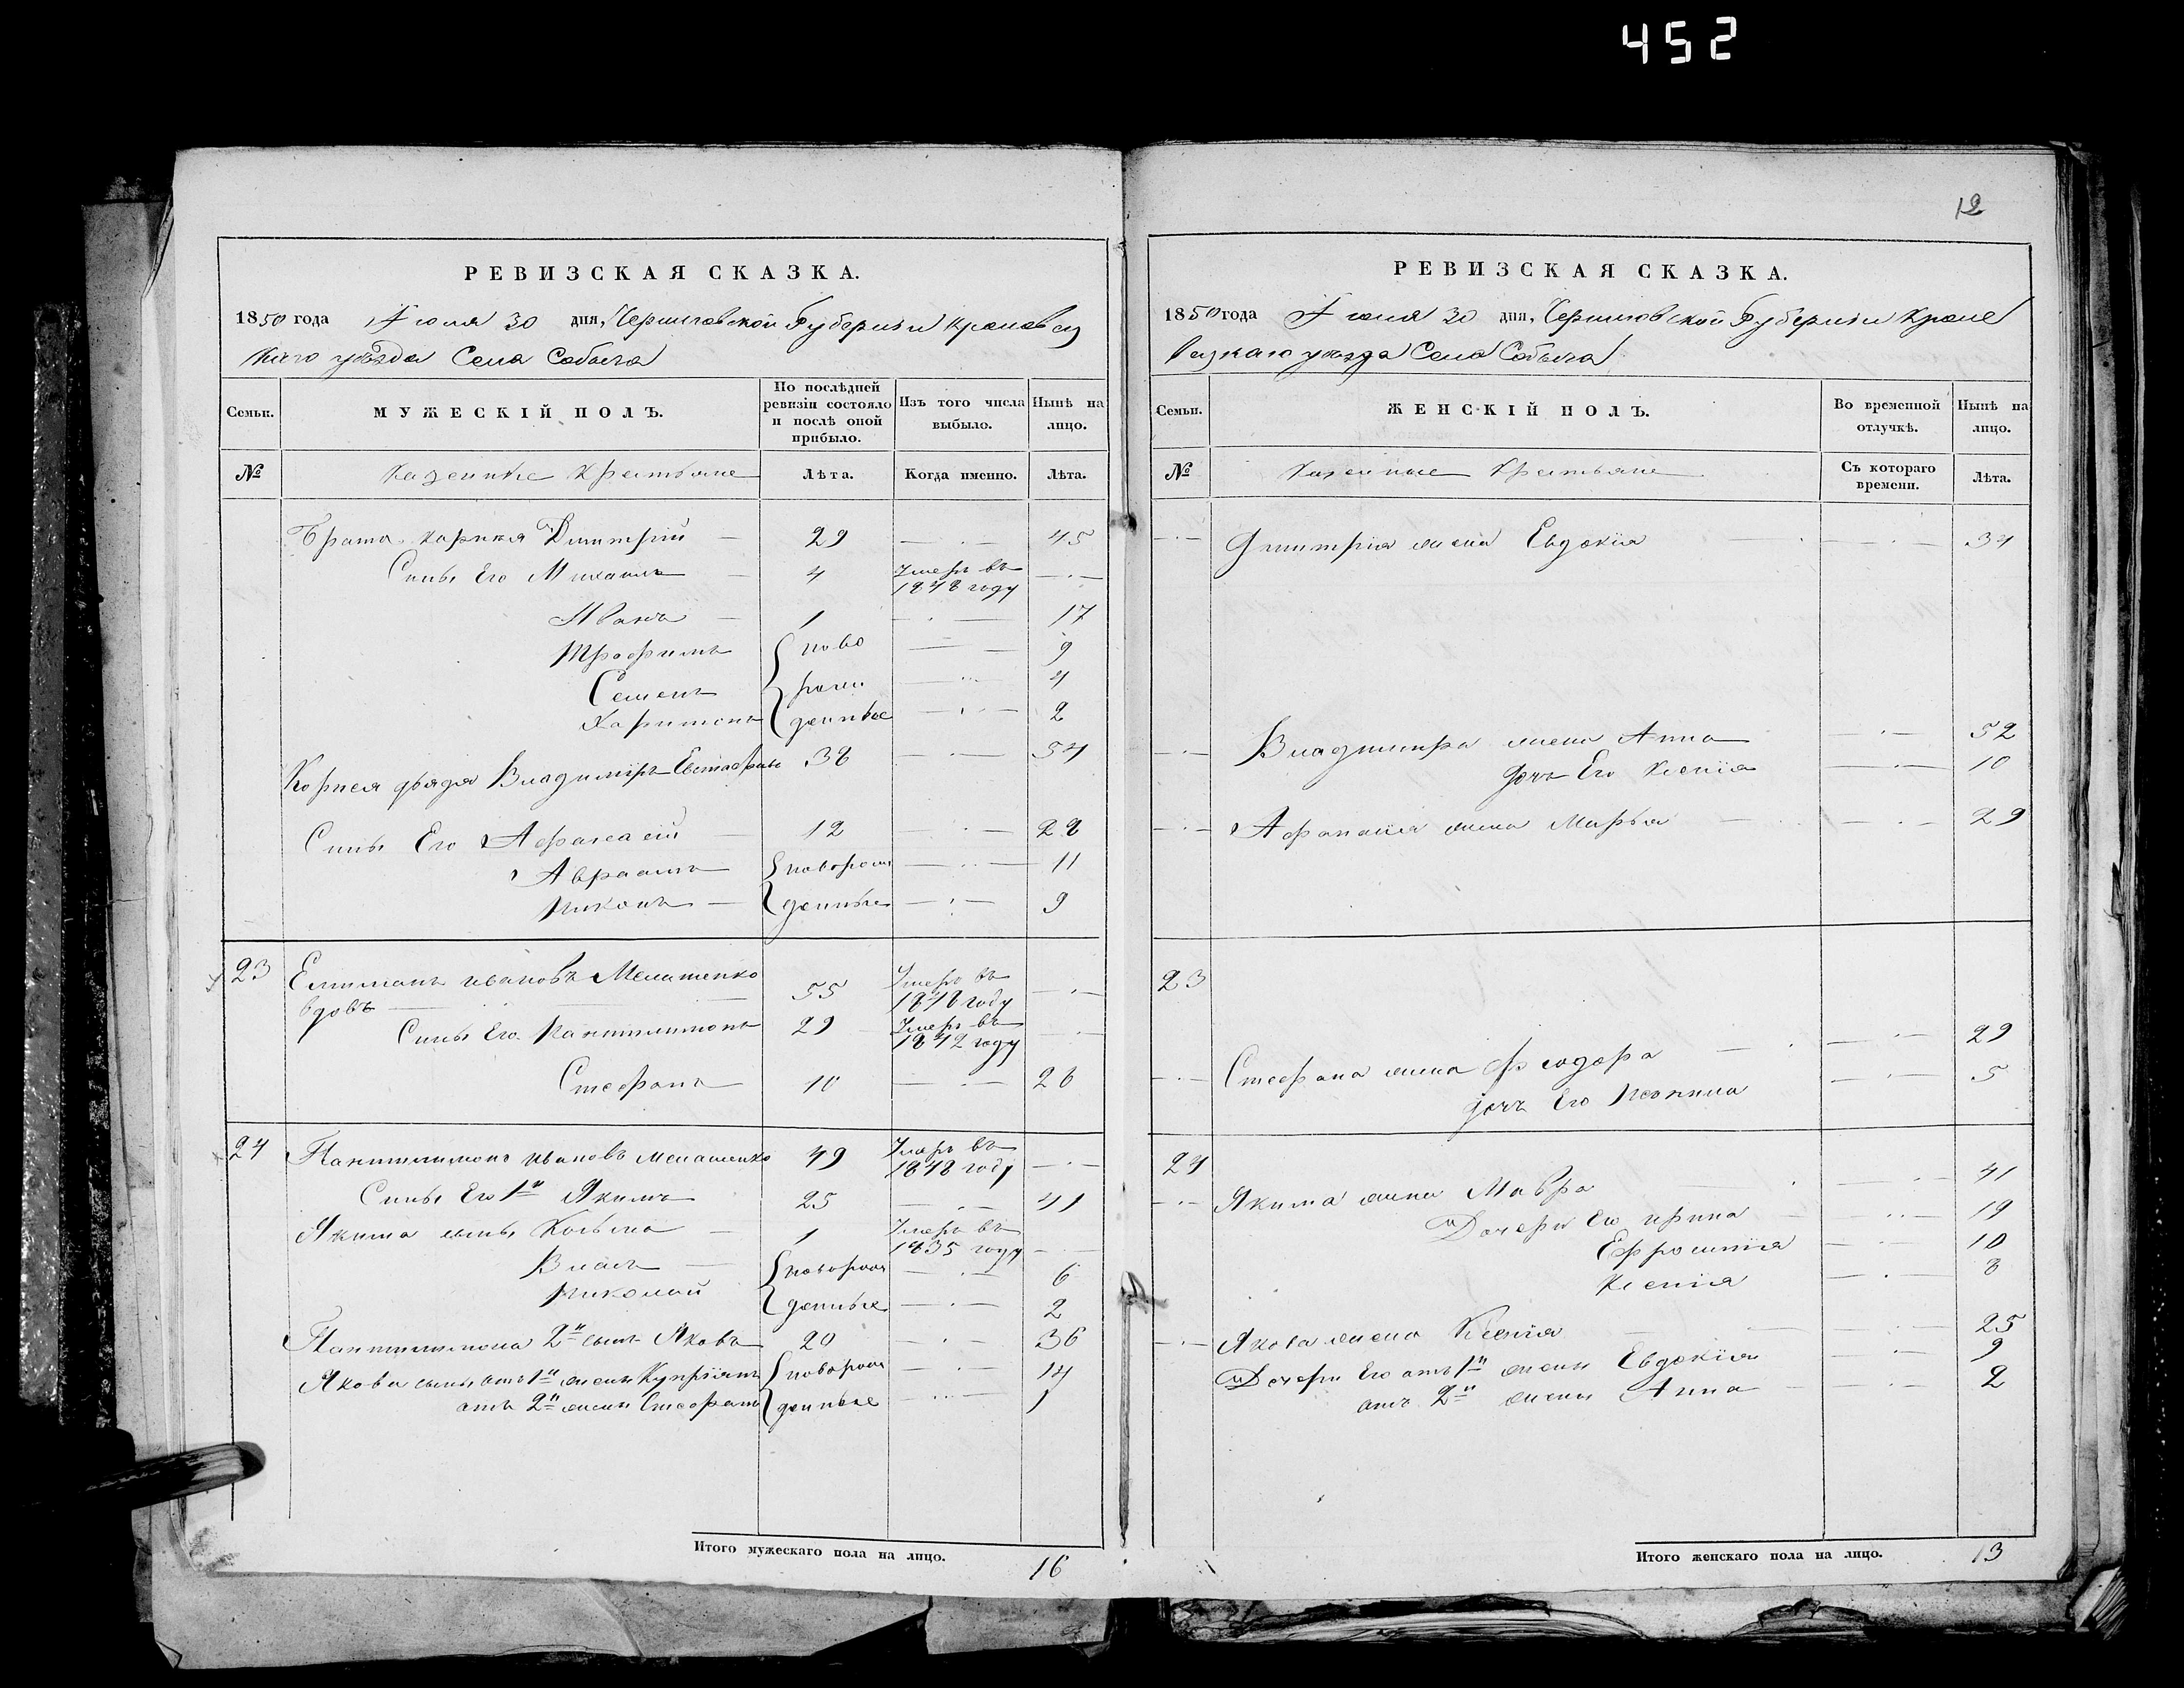 452
12
РЕВИЗСКАЯ СКАЗКА.
1850 года Июля 30 дня, Черниговской Губерніи Кролевец
каго уѣзда Села Собыча
Семьи. МУЖЕСКІЙ ПОЛЪ. По послѣдней ревизіи состояло и послѣ оной прибыло. Изъ того числа выбыло. Нынѣ на лицо.
№ Казенные Крестьяне Лѣта. Когда именно. Лѣта.
Брата Корнея Димитрій 29 45
Сынъ Его Михаилъ 4 Умеръ въ 1848 году
Иванъ 1 17
Трофимъ ново 9
Семенъ рожен 4
Харитонъ денные 2
Корнея дядя Владиміръ Евстафіевъ 38 54
Сынъ Его Афанасій 12 28
Авраамъ новорож 11
Никонъ денные 9
23 Емелианъ Ивановъ
вдовъ 55 Умеръ въ 1848 году
Сынъ Его Пантилимонъ 29 Умеръ въ 1842 году
Стефанъ 10 26
24 Пантилимонъ Ивановъ 49 Умеръ въ 1848 году
Сынъ Его 1й Якимъ 25 41
Якима сынъ Козьма 1 Умеръ въ 1835 году
Власъ новорож 6
Николай денные 2
Пантилимона 2й сынъ Яковъ 20 36
Якова сынъ отъ 1й жены Купріянъ новорож 14
отъ 2й жены Стефанъ денные 1
Итого мужескаго пола на лицо. 16
РЕВИЗСКАЯ СКАЗКА.
1850 года Июля 30 дня, Черниговской Губерніи Кроле
вецкаго уѣзда Села Собыча
Семьи. ЖЕНСКІЙ ПОЛЪ. Во временной отлучкѣ. Нынѣ на лицо.
№ Казенные Крестьяне Съ котораго времени. Лѣта.
Дмитрія жена Евдокія 34
Владиміра жена Анна 52
Дочь Его Ксенія 10
Афанасія жена Марья 29
23
Стефана жена Феодора 29
дочь Его 5
24
Якима жена Мавра 41
Дочери Его Ирина 19
Ефросинія 10
Ксенія 8
Якова жена Ксенія 25
Дочери Его отъ 1й жены Евдокія 9
отъ 2й жены Анна 2
Итого женскаго пола на лицо. 13